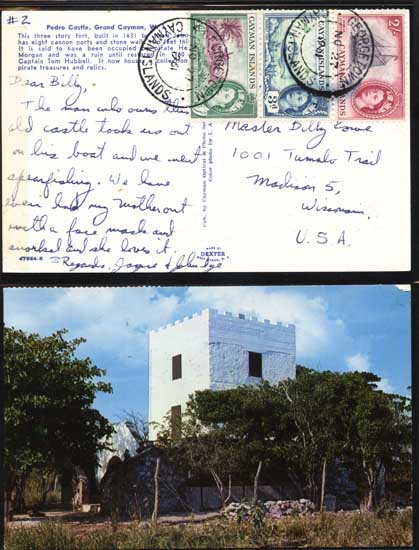 #2
Pedro Castle, Grand Cayman, W.
This three story fort, built in 1631
has eight cannon ports and stone walls
It is said to have been occupied
Morgan and was a ruin until restored
Captain Tom Hubbell. It now houses collection
pirate treasures and relics.
CAYMAN ISLANDS
CAYMAN ISLANDS
3d
CAYMAN ISLANDS
2/-
GEORGETOWN
CAYMAN ISLANDS
Dear Billy,
The man who owns this
old castle took us out
on his boat and we went
spearfishing. We have
even had my mother out
with a face mask and
snorkel and she loves it.
Regards, Joyce & John
Master Billy Lowe
1001 Tumalo Trail
Madison 5,
Wisconsin,
U.S.A.
Pub. by Cayman
Color photo by
MADE BY
DEXTER
47864-B